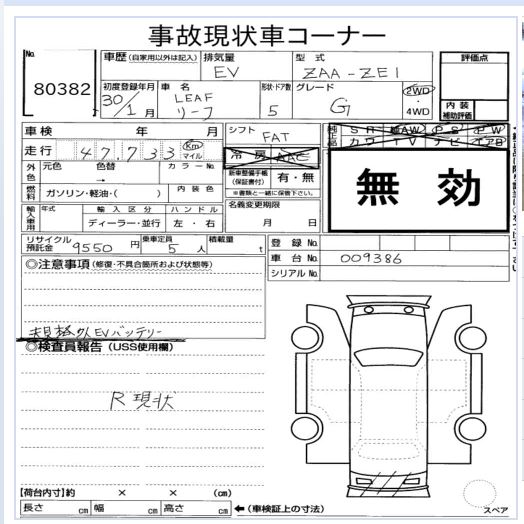 事故現状車コーナー
No. 80382
車歴 (自家用以外は記入) 排気量 EV 型式 ZAA-ZE1 評価点
初度登録年月 30/1月 車名 LEAF リーフ 形状・ドア数 5 グレード G 2WD・4WD 内装補助評価
車検 年 月 シフト FAT SR 純AW PS PW
走行 47,733 Km マイル 冷房 AAC カワ TV ナビ エアB
外色 元色 色替 → カラーNo. 新車整備手帳(保証書付) 有・無
※書類と一緒に保管下さい。
燃料 ガソリン・軽油・( ) 内装色 無効
輸入車用 年式 輸入区分 ハンドル 名義変更期限
ディーラー・並行 左・右 月 日
リサイクル預託金 9550円 乗車定員 5人 積載量 t 登録No.
車台No. 009386
シリアルNo.
◎注意事項 (修復・不具合箇所および状態等)
EVバッテリー
◎検査員報告 (USS使用欄)
R現状
【荷台内寸】約 × × (cm)
長さ cm 幅 cm 高さ cm ←(車検証上の寸法)
スペア